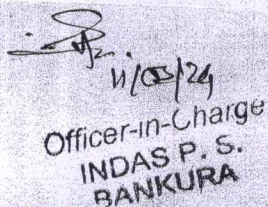 11/03/24
Officer-in-Charge
INDAS P. S.
BANKURA